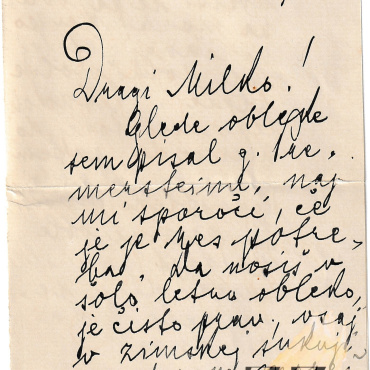 Dragi Milko!
Glede obleke
sem pisal g. Pre,
mersteinu, naj
mi sporoči, če
je je res potre,
ba. Da nosiš v
šolo letno obleko,
je čisto prav, vsaj
v zimskej suknji